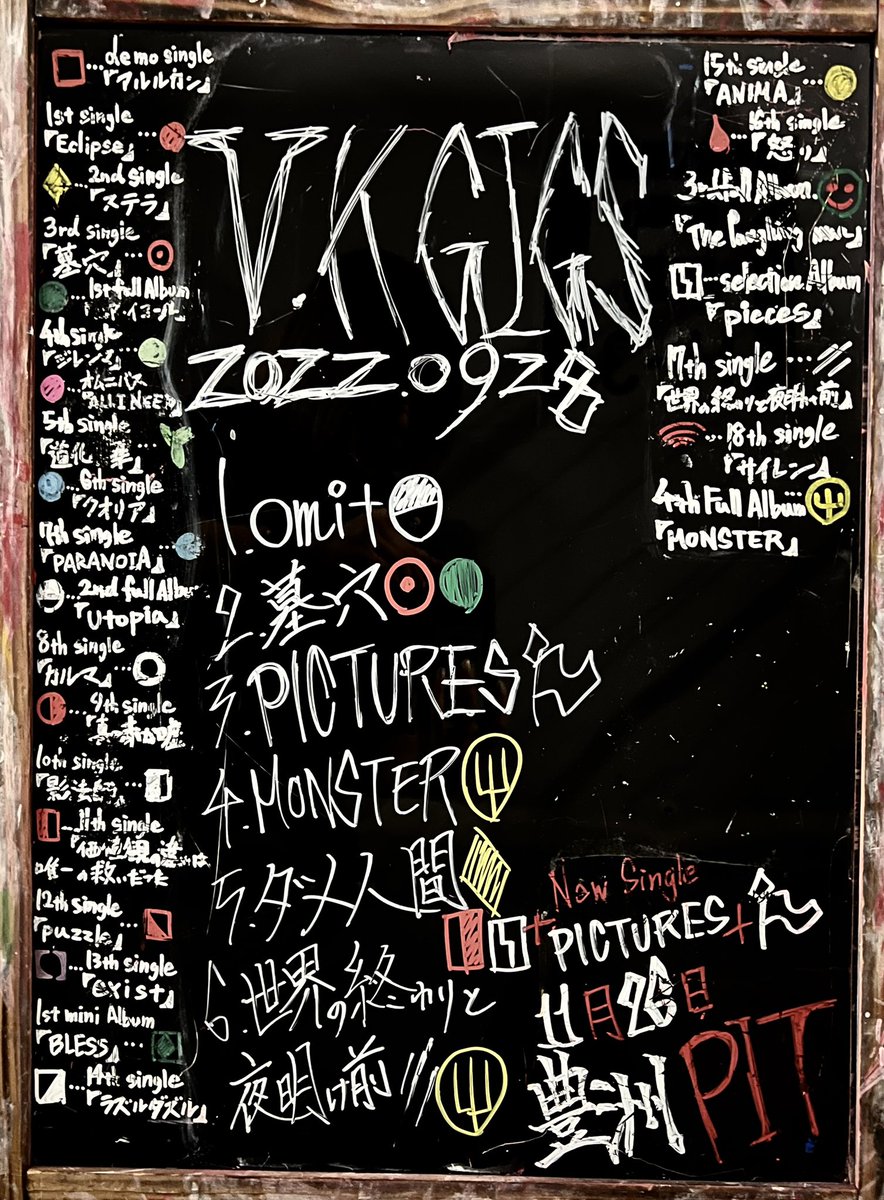 demo single
『アルルカン』
1st single
『Eclipse』
2nd single
『ステラ』
3rd single
『墓穴』
1st full Album
『アイコール』
4th single
『ジレンマ』
オムニバス
5th single
『道化 華』
6th single
『クオリア』
7th single
『PARANOIA』
2nd full Album
『Utopia』
8th single
『カルマ』
9th single
10th single
『影法師』
11th single
『価値観の違いは
唯一の救いだった
12th single
『puzzle』
13th single
『exist』
1st mini Album
『BLESS』
14th single
『ラズルダズル』
V.K GIGS
2022.0928
1.omit
2.墓穴
3.PICTURES
4.MONSTER
5.ダメ人間
6.世界の終わりと
夜明け前
15th single
『ANIMA』
16th single
『怒り』
3rd full Album
『The laughing man』
selection Album
『pieces』
17th single
『世界の終わりと夜明け前』
18th single
『サイレン』
4th Full Album
『MONSTER』
New Single
+PICTURES+
11月26日
豊洲PIT